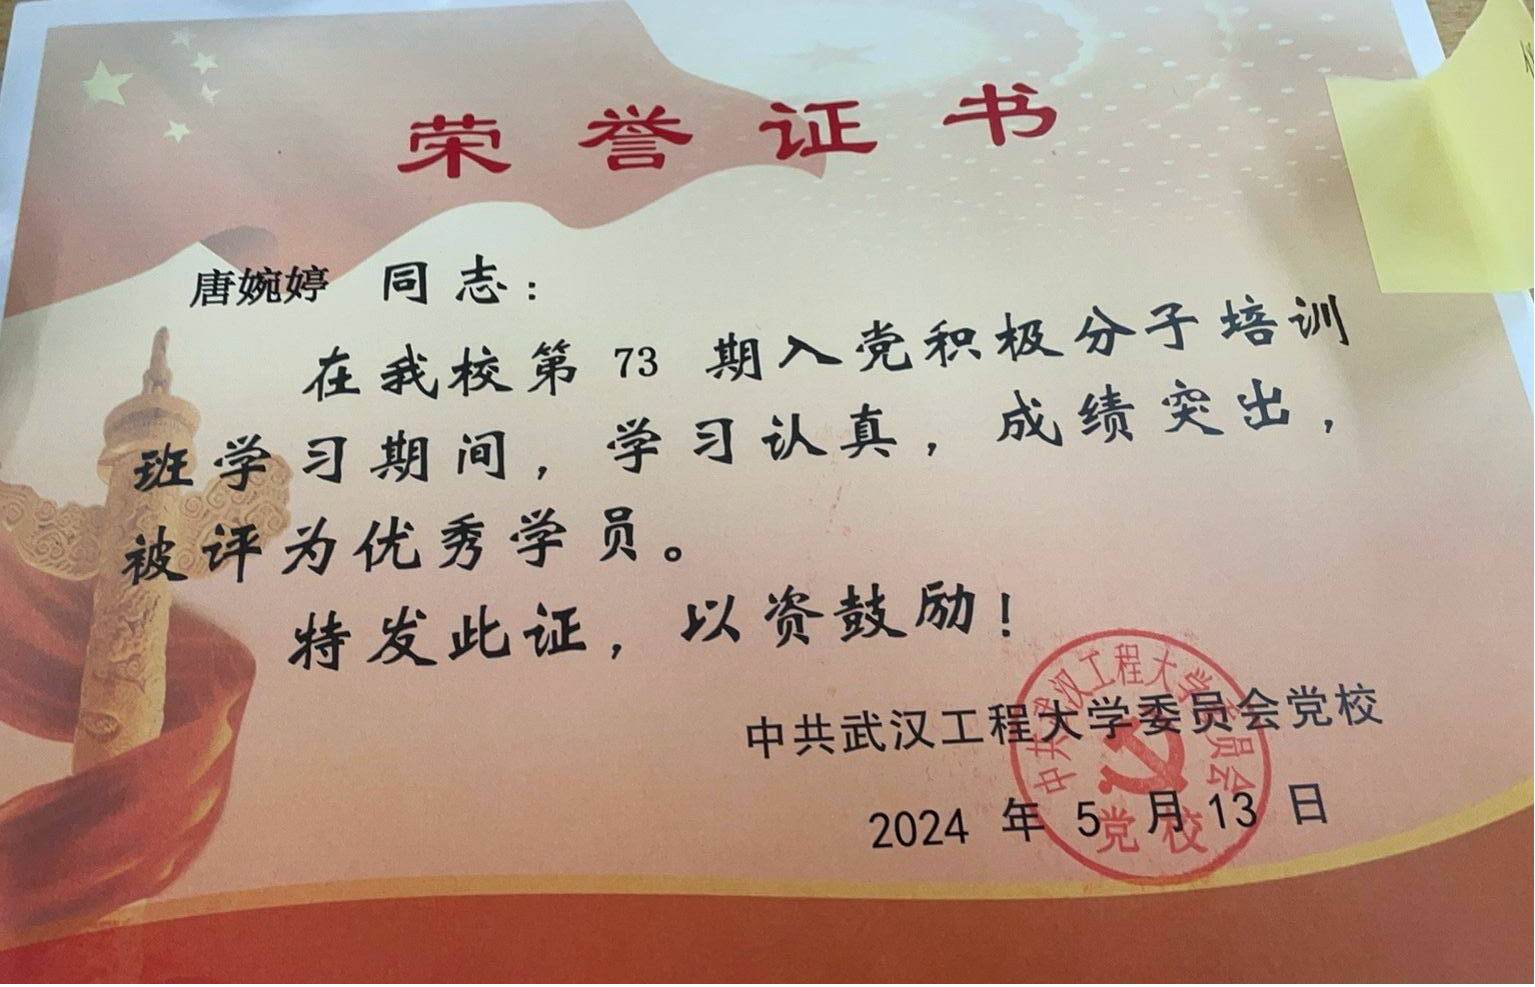 荣誉证书
唐婉婷 同志：
在我校第 73 期入党积极分子培训
班学习期间，学习认真，成绩突出，
被评为优秀学员。
特发此证，以资鼓励！
中共武汉工程大学委员会党校
2024 年 5 月 13 日
中共武汉工程大学委员会
党校